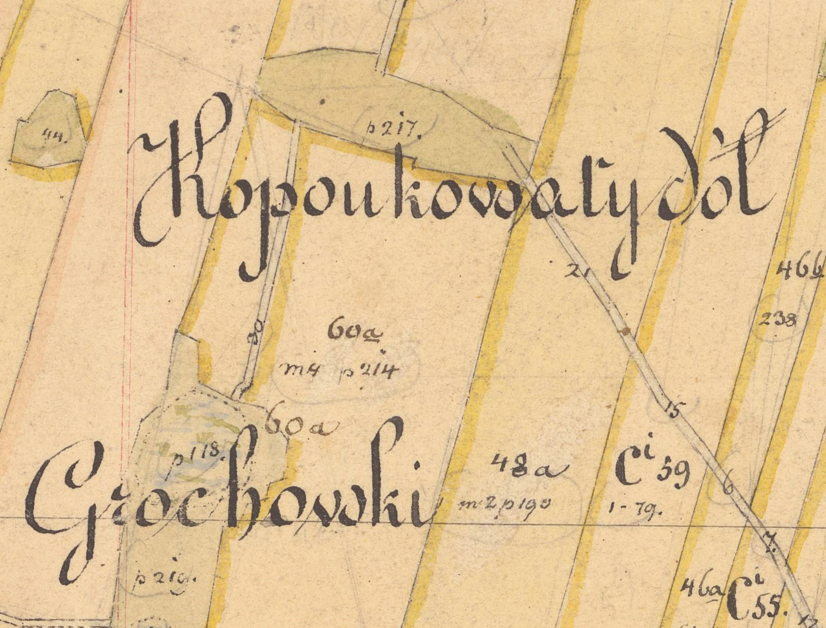 44.
p217.
Kopoukowaty dół
21
46b
238
30
60a
m4 p214
15
60a
p118.
48a
Ci 59
Grochowski
m2 p190
1-79.
6
7.
p219.
46a Ci 55.